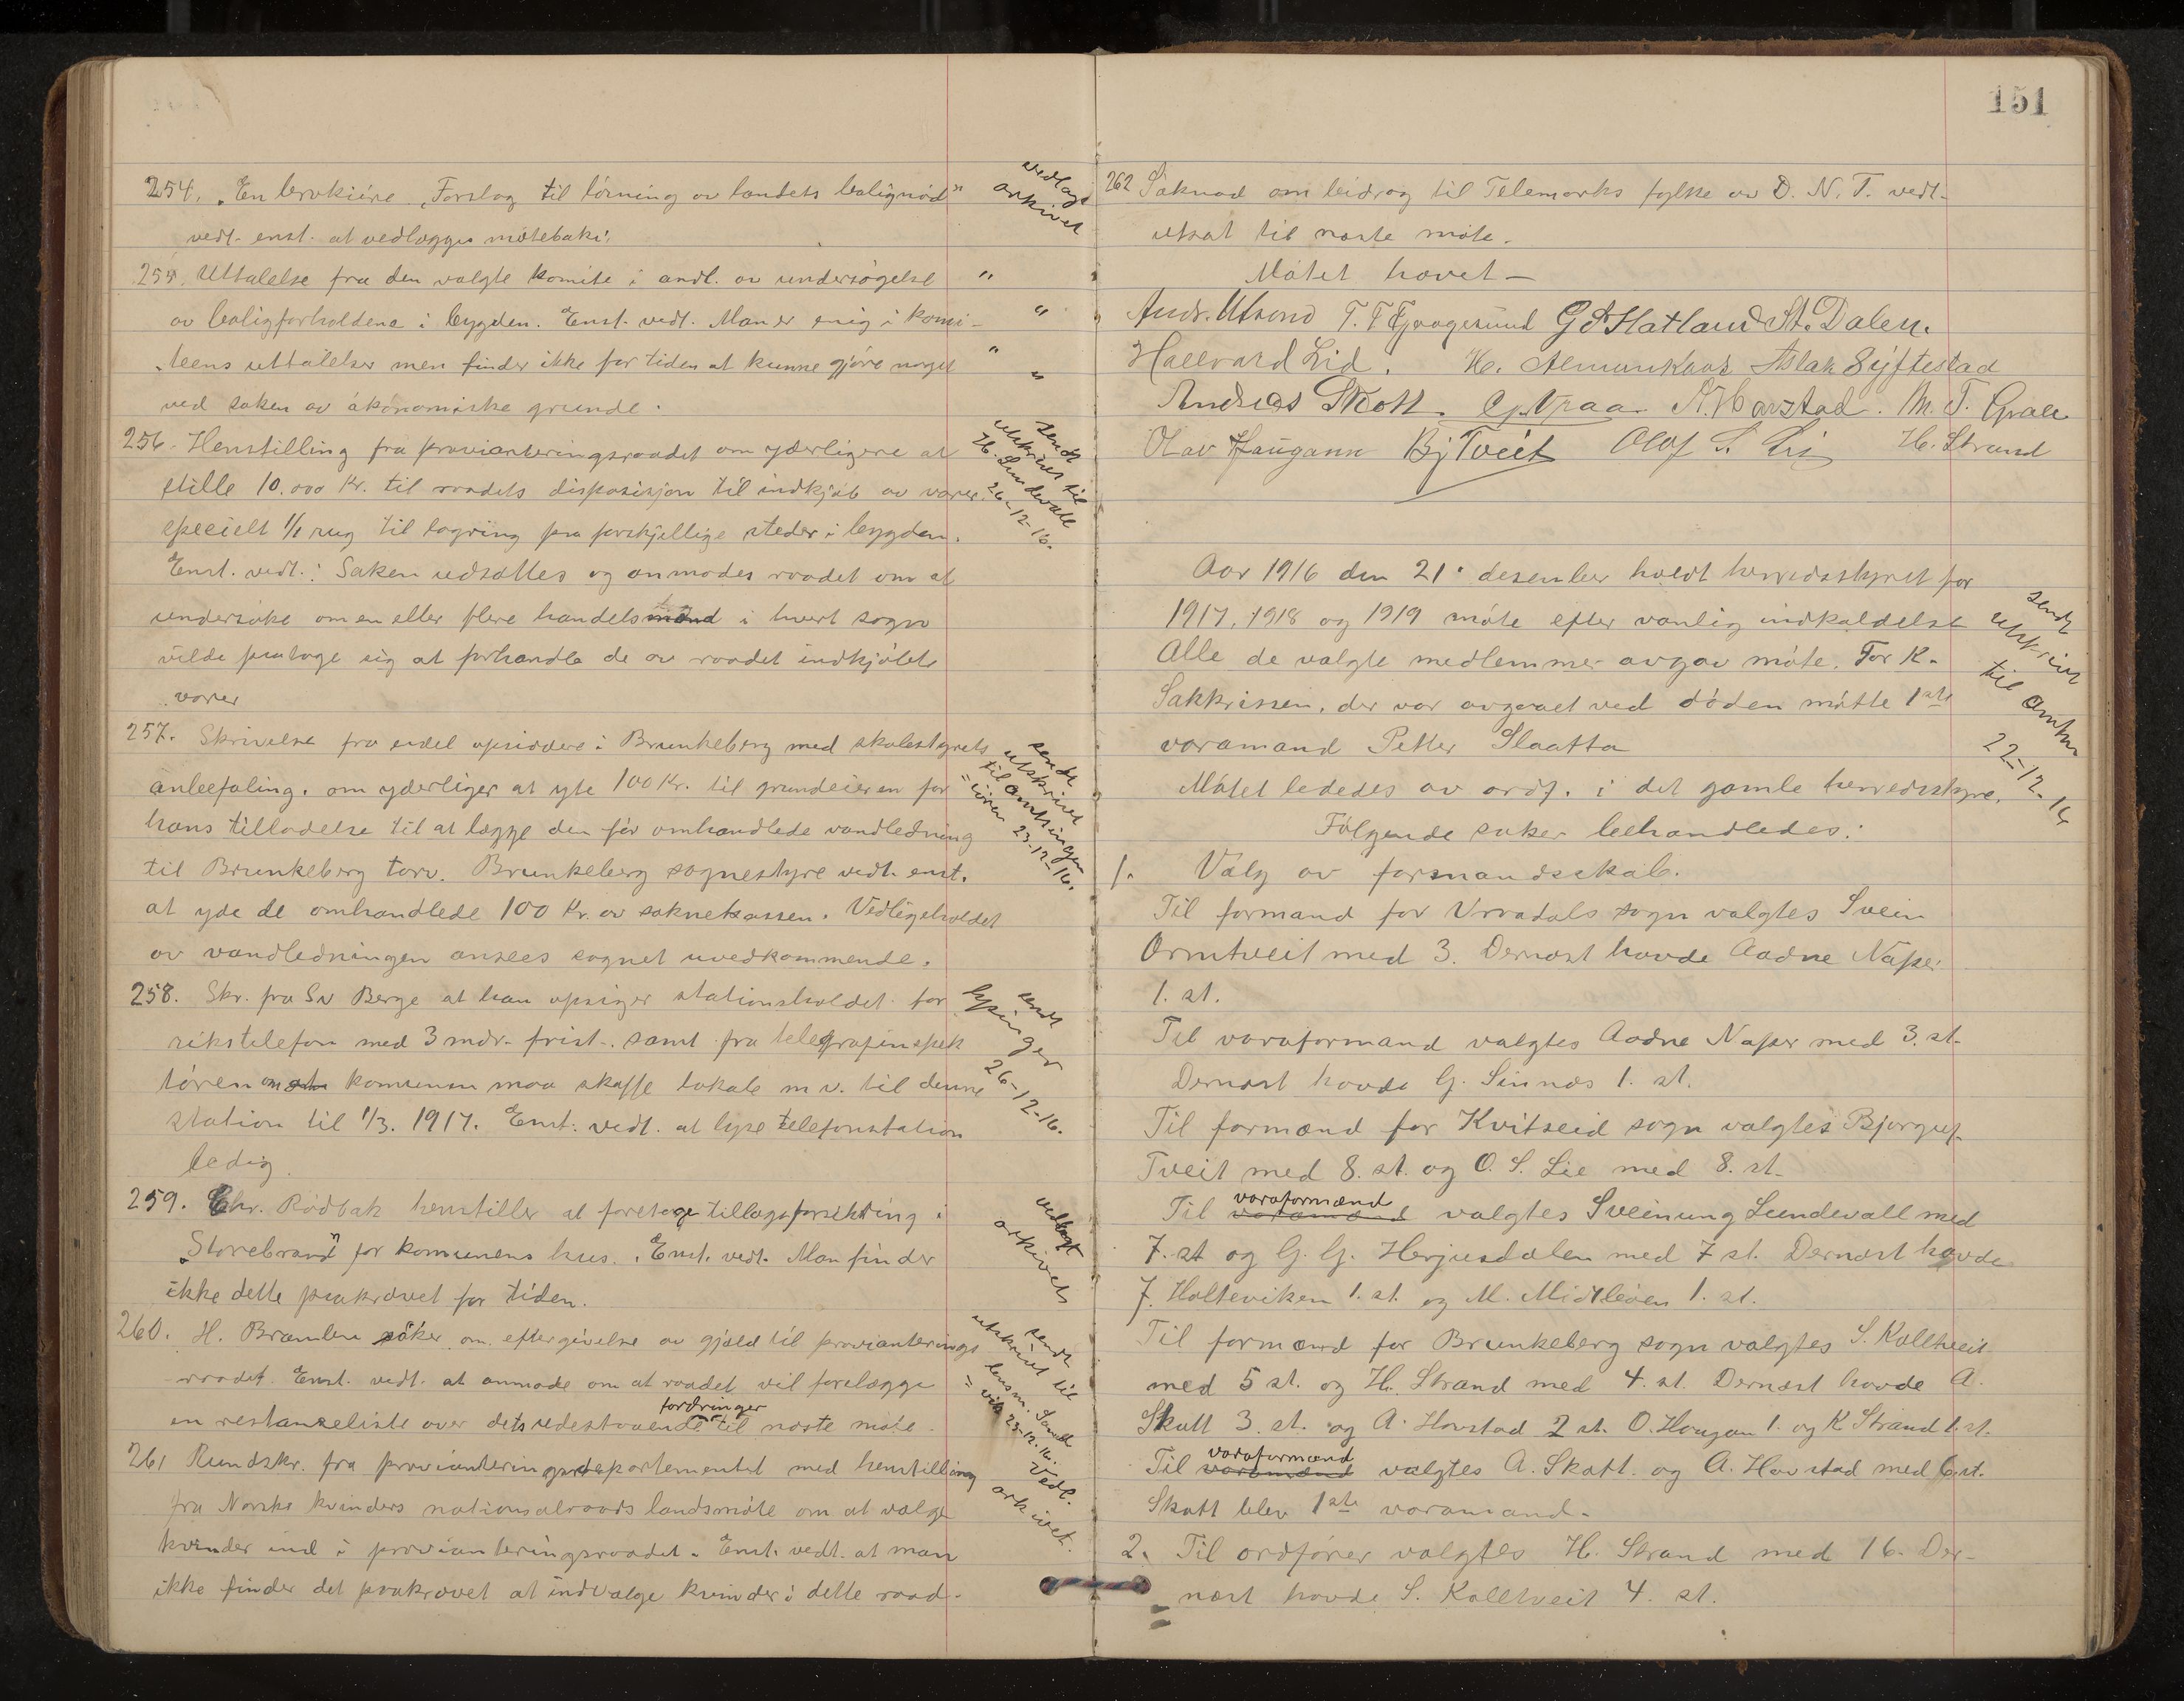 254. "En brokiüre "Forslag til lösning av landets bolignöd"
vedt. enst. at vedlægges mötebok.
vedlagt
arkivet
255. Uttalelse fra den valgte komite i andl. av undersögelse "
av boligforholdene i bygden. Enst. vedt. Man er enig i komi- "
teens uttalelser men finder ikke for tiden at kunne gjöre noget "
ved saken av ökonomiske grunde. "
256. Henstilling fra provianteringsraadet om yderligere at
stille 10.000 Kr. til raadets disposisjon til indkjöb av varer.
specielt 1/1 rug til lagring paa forskjellige steder i bygden.
Enst. vedt.: Saken utsættes og anmodes raadet om at
undersöke om en eller flere handelsmænd i hvert sogn
vilde paatage sig at forhandle de av raadet indkjöbte
varer
sendt
utskrivt til
H. Lundevall
26-12-16.
257. Skrivelse fra endel opsiddere i Brunkeberg med skolestyrets
anbefaling. om yderliger at yte 100 Kr. til grundeieren for
hans tilladelse til at lægge den för omhandlede vandledning
til Brunkeberg torv. Brunkeberg sognestyre vedt. enst.
at yde de omhandlede 100 Kr. av soknekassen. Vedligeholdet
av vandledningen ansees sognet uvedkommende.
sendt
utskrivt
til amtsingen
= iören 23-12-16.
258. Skr. fra Sv Berge at han opsiger stationsholdet for
rikstelefon med 3 mdr. frist. samt fra telegrafinspek
tören om at komunen maa skaffe lokale m v. til denne
station til 1/3. 1917. Enst. vedt. at lyse telefonstation
ledig.
sendt
lysinger
26-12-16.
259. Chr. Rödbak henstiller at foretage tillægsforsikring i
"Storebrand" for komunens hus. Enst. vedt. Man finder
ikke dette paakrævet for tiden.
vedlagt
arkivets
260. H. Bramlene söker om eftergivelse av gjæld til provianterings
raadet. Enst. vedt. at anmode om at raadet vil forelægge
en restanseliste over dets udestaaende fordringer til næste möte.
sendt
utskrivt til
lensm. Sand
= vik 23-12-16.
261 Rundskr. fra provianteringsdepartementet med henstilling
fra Norske kvinders nationsalraads landsmöte om at vælge
kvinder ind i provianteringsraadet. Enst. vedt. at man
ikke finder det paakrævet at indvælge kvinder i dette raad.
Vedl.
arkivet.
151
262 Söknad om bidrag til Telemarks fylke av D. N. T. vedt.
utsat til næste möte.
Mötet hævet —
Andr. Utsond T. T. G. Hatland St. Dalen.
Hallvard Lid. H. Aslak Syftestad
Andreas Skott. G. Vraa. A. Havstad. M. T. Graae
Olav Haugann Bj Tveit Olof S. Li H. Strand
Aar 1916 den 21. desember holdt herredsstyret for
1917, 1918 og 1919 möte efter vanlig indkaldelse
Alle de valgte medlemmer avgav möte. For K.
Sakkrissen, der var avgaaet ved döden mötte 1ste
varamand Petter Slaatta
Mötet lededes av ordf. i det gamle herredsstyre.
sendt
utskrivt
til amtm
22-12-16
Fölgende saker behandledes:
1. Valg av formandsskab.
Til formand for Vraadals sogn valgtes Svein
Ormtveit med 3. Dernæst havde Aadne Naper
1. st.
Til varaformand valgtes Aadne Naper med 3. st.
Dernæst havde G. Sinnes 1. st.
Til formænd for Kvitseid sogn valgtes Bjorgulf
Tveit med 8. st. og O. S. Lie med 8. st.
Til varamænd varaformænd valgtes Sveinung Lundevall med
7. st og G. G. Herjusdalen med 7 st. Dernæst havde
J. Holteviken 1. st. og M. Midtleoen 1. st.
Til formænd for Brunkeberg sogn valgtes S. Kolltveit
med 5 st. og H. Strand med 4. st Dernæst havde A.
Skott 3. st. og A. Hovstad 2 st. O. Haugan 1. og K Strand 1. st.
Til varamænd varaformænd valgtes A. Skott. og A. Hovstad med 6. st.
Skott blev 1ste varamand.
2. Til ordförer valgtes H. Strand med 16. Der-
næst havde S. Kolltveit 4. st.